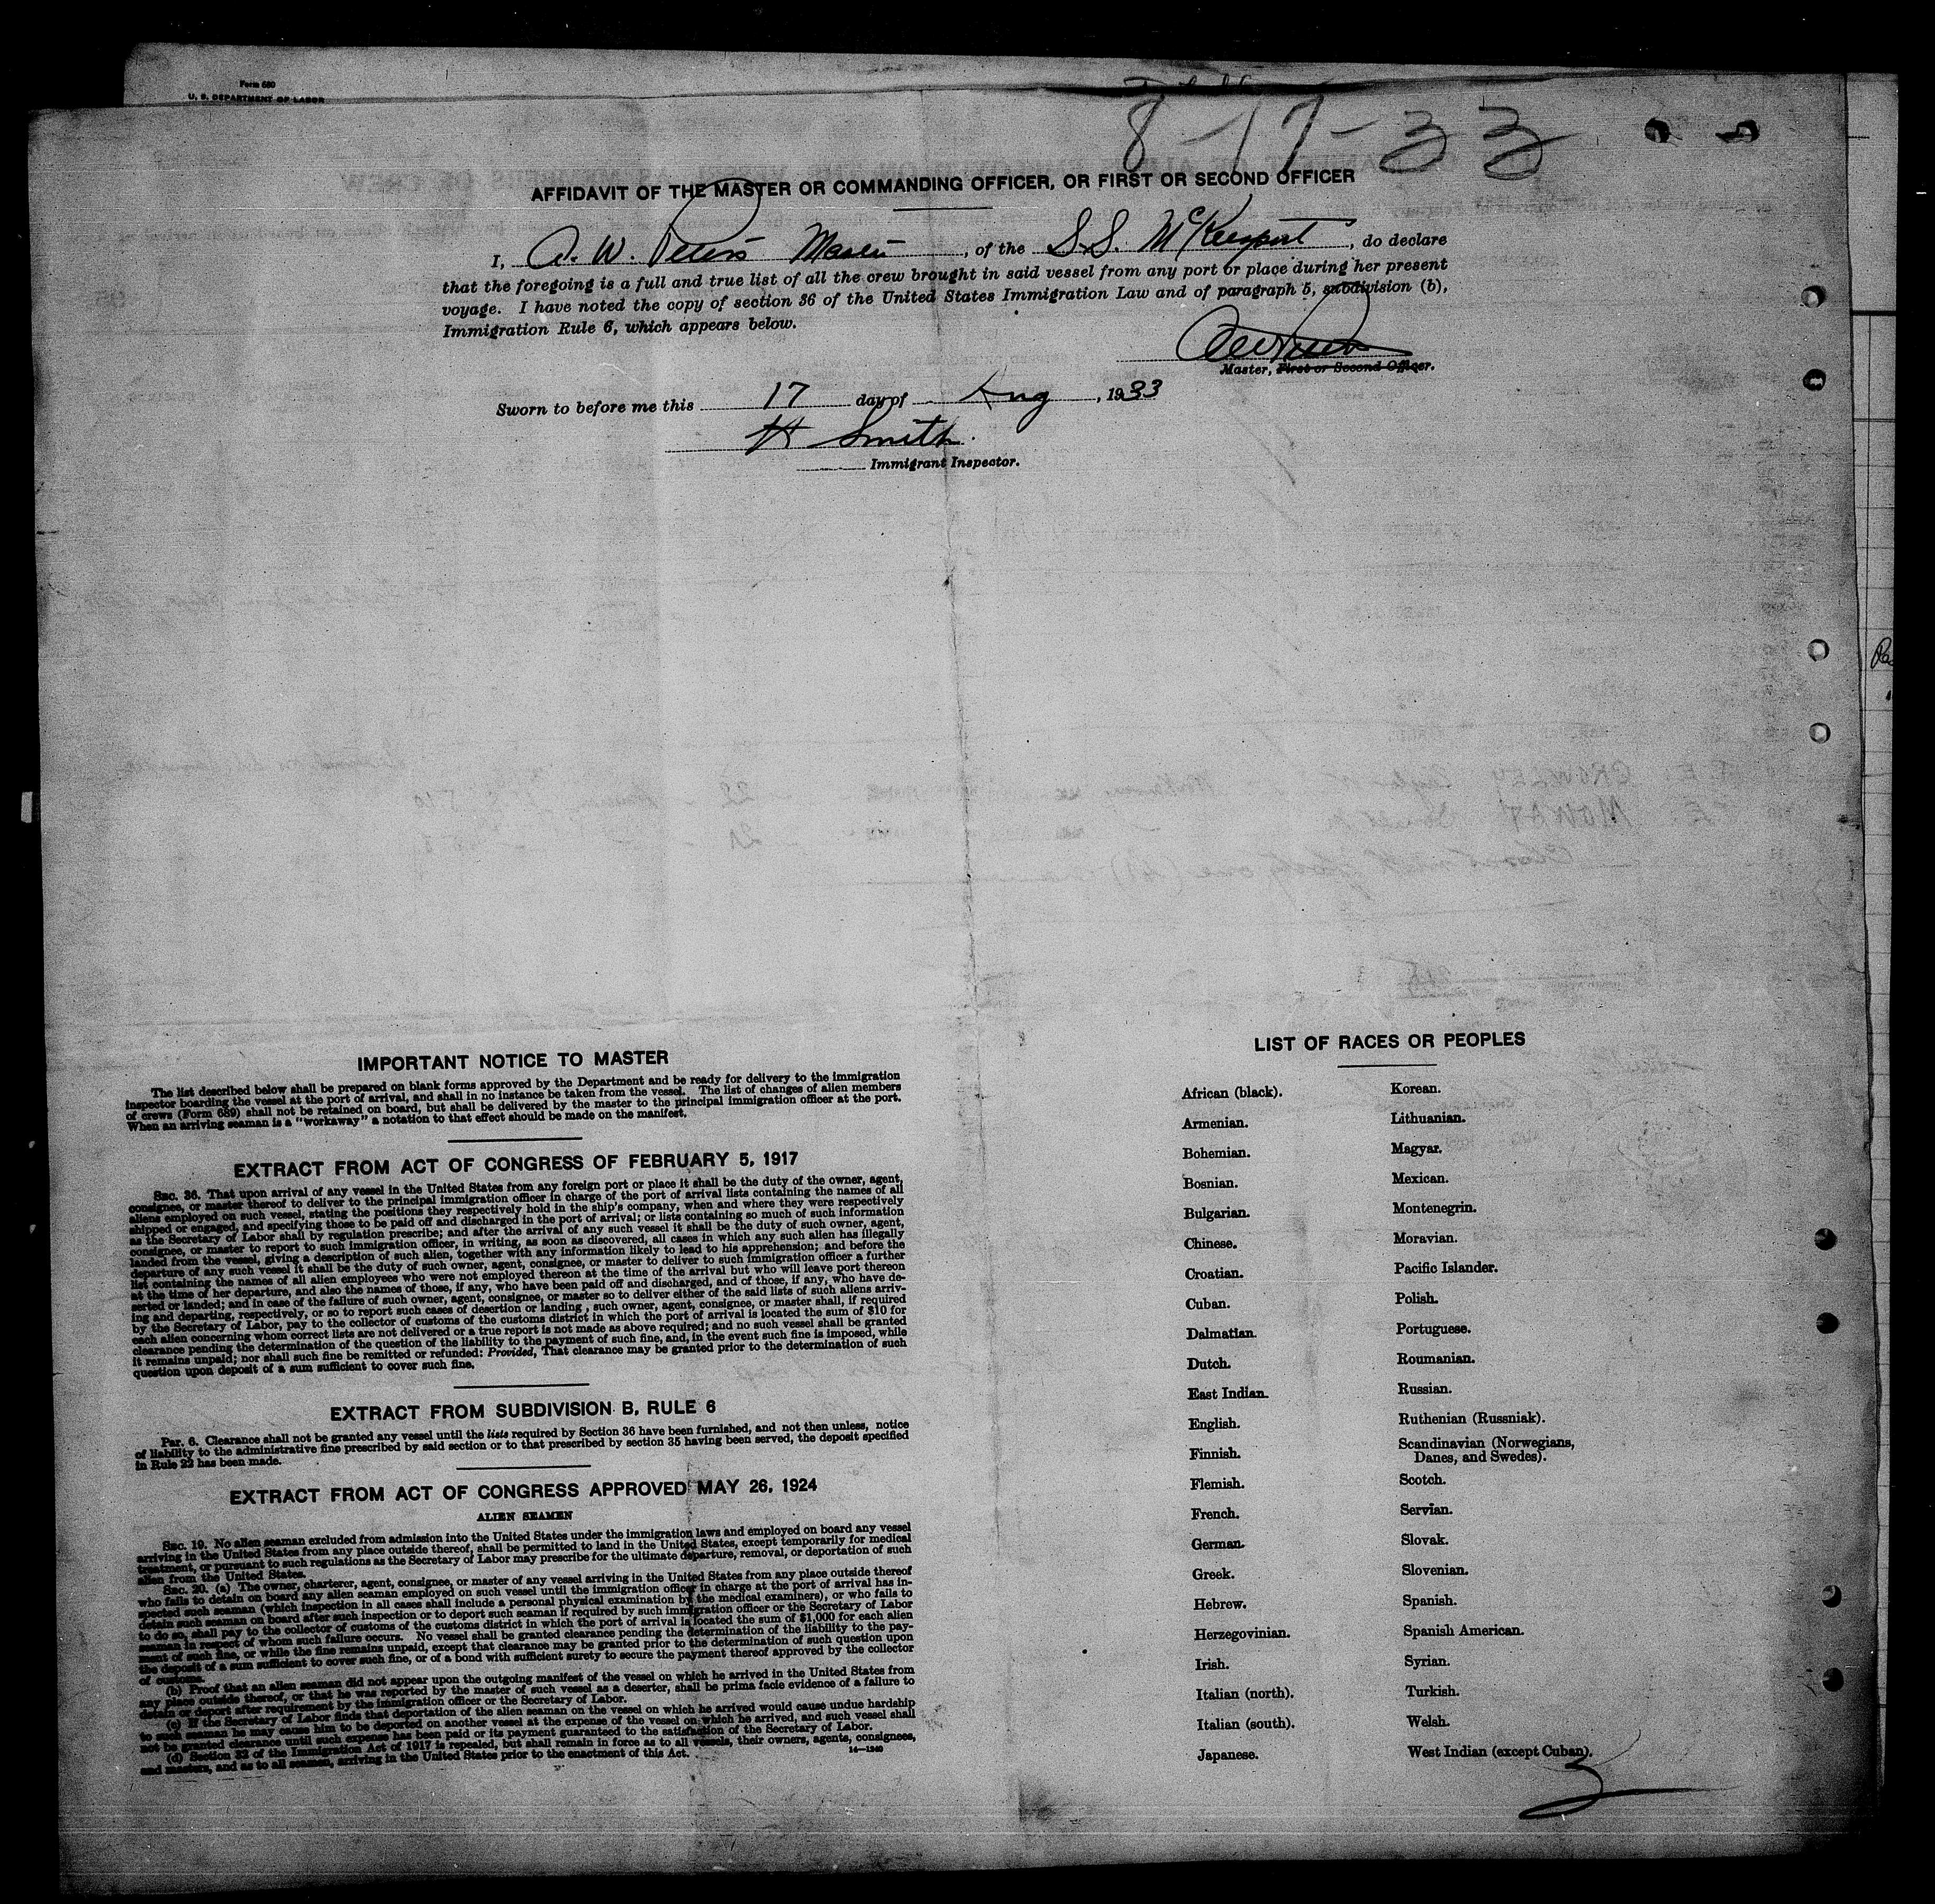 Form 680
U. S. DEPARTMENT OF LABOR
8-17-33
AFFIDAVIT OF THE MASTER OR COMMANDING OFFICER, OR FIRST OR SECOND OFFICER
I, A. W. Peters Master, of the S.S. McKeesport, do declare
that the foregoing is a full and true list of all the crew brought in said vessel from any port or place during her present
voyage. I have noted the copy of section 36 of the United States Immigration Law and of paragraph 5, subdivision (b),
Immigration Rule 6, which appears below.
Master, First or Second Officer.
Sworn to before me this 17 day of Aug, 1933
H Smith.
Immigrant Inspector.
IMPORTANT NOTICE TO MASTER
The list described below shall be prepared on blank forms approved by the Department and be ready for delivery to the immigration
inspector boarding the vessel at the port of arrival, and shall in no instance be taken from the vessel. The list of changes of alien members
of crews (Form 689) shall not be retained on board, but shall be delivered by the master to the principal immigration officer at the port.
When an arriving seaman is a "workaway" a notation to that effect should be made on the manifest.
EXTRACT FROM ACT OF CONGRESS OF FEBRUARY 5, 1917
SEC. 36. That upon arrival of any vessel in the United States from any foreign port or place it shall be the duty of the owner, agent,
consignee, or master thereof to deliver to the principal immigration officer in charge of the port of arrival lists containing the names of all
aliens employed on such vessel, stating the positions they respectively hold in the ship's company, when and where they were respectively
shipped or engaged, and specifying those to be paid off and discharged in the port of arrival; or lists containing so much of such information
as the Secretary of Labor shall by regulation prescribe; and after the arrival of any such vessel it shall be the duty of such owner, agent,
consignee, or master to report to such immigration officer, in writing, as soon as discovered, all cases in which any such alien has illegally
landed from the vessel, giving a description of such alien, together with any information likely to lead to his apprehension; and before the
departure of any such vessel it shall be the duty of such owner, agent, consignee, or master to deliver to such immigration officer a further
list containing the names of all alien employees who were not employed thereon at the time of the arrival but who will leave port thereon
at the time of her departure, and also the names of those, if any, who have been paid off and discharged, and of those, if any, who have de-
serted or landed; and in case of the failure of such owner, agent, consignee, or master so to deliver either of the said lists of such aliens arriv-
ing and departing, respectively, or so to report such cases of desertion or landing, such owner, agent, consignee, or master shall, if required
by the Secretary of Labor, pay to the collector of customs of the customs district in which the port of arrival is located the sum of $10 for
each alien concerning whom correct lists are not delivered or a true report is not made as above required; and no such vessel shall be granted
clearance pending the determination of the question of the liability to the payment of such fine, and, in the event such fine is imposed, while
it remains unpaid; nor shall such fine be remitted or refunded: Provided, That clearance may be granted prior to the determination of such
question upon deposit of a sum sufficient to cover such fine.
EXTRACT FROM SUBDIVISION B, RULE 6
Par. 6. Clearance shall not be granted any vessel until the lists required by Section 36 have been furnished, and not then unless, notice
of liability to the administrative fine prescribed by said section or to that prescribed by section 35 having been served, the deposit specified
in Rule 22 has been made.
EXTRACT FROM ACT OF CONGRESS APPROVED MAY 26, 1924
ALIEN SEAMEN
SEC. 19. No alien seaman excluded from admission into the United States under the immigration laws and employed on board any vessel
arriving in the United States from any place outside thereof, shall be permitted to land in the United States, except temporarily for medical
treatment, or pursuant to such regulations as the Secretary of Labor may prescribe for the ultimate departure, removal, or deportation of such
alien from the United States.
SEC. 20. (a) The owner, charterer, agent, consignee, or master of any vessel arriving in the United States from any place outside thereof
who fails to detain on board any alien seaman employed on such vessel until the immigration officer in charge at the port of arrival has in-
spected such seaman (which inspection in all cases shall include a personal physical examination by the medical examiners), or who fails to
detain such seaman on board after such inspection or to deport such seaman if required by such immigration officer or the Secretary of Labor
to do so, shall pay to the collector of customs of the customs district in which the port of arrival is located the sum of $1,000 for each alien
seaman in respect of whom such failure occurs. No vessel shall be granted clearance pending the determination of the liability to the pay-
ment of such fine, or while the fine remains unpaid, except that clearance may be granted prior to the determination of such question upon
the deposit of a sum sufficient to cover such fine, or of a bond with sufficient surety to secure the payment thereof approved by the collector
of customs.
(b) Proof that an alien seaman did not appear upon the outgoing manifest of the vessel on which he arrived in the United States from
any place outside thereof, or that he was reported by the master of such vessel as a deserter, shall be prima facie evidence of a failure to
detain or deport after requirement by the immigration officer or the Secretary of Labor.
(c) If the Secretary of Labor finds that deportation of the alien seaman on the vessel on which he arrived would cause undue hardship
to such seaman he may cause him to be deported on another vessel at the expense of the vessel on which he arrived, and such vessel shall
not be granted clearance until such expense has been paid or its payment guaranteed to the satisfaction of the Secretary of Labor.
(d) Section 32 of the Immigration Act of 1917 is repealed, but shall remain in force as to all vessels, their owners, agents, consignees,
and masters, and as to all seamen, arriving in the United States prior to the enactment of this Act.
14—1240
LIST OF RACES OR PEOPLES
African (black).
Armenian.
Bohemian.
Bosnian.
Bulgarian.
Chinese.
Croatian.
Cuban.
Dalmatian.
Dutch.
East Indian.
English.
Finnish.
Flemish.
French.
German.
Greek.
Hebrew.
Herzegovinian.
Irish.
Italian (north).
Italian (south).
Japanese.
Korean.
Lithuanian.
Magyar.
Mexican.
Montenegrin.
Moravian.
Pacific Islander.
Polish.
Portuguese.
Roumanian.
Russian.
Ruthenian (Russniak).
Scandinavian (Norwegians,
Danes, and Swedes).
Scotch.
Servian.
Slovak.
Slovenian.
Spanish.
Spanish American.
Syrian.
Turkish.
Welsh.
West Indian (except Cuban).
3